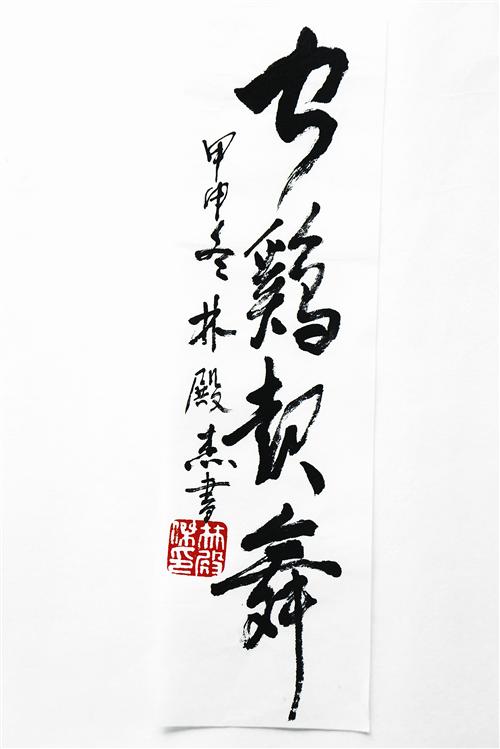 闻鸡起舞
甲申冬林殿杰書
林殿杰印